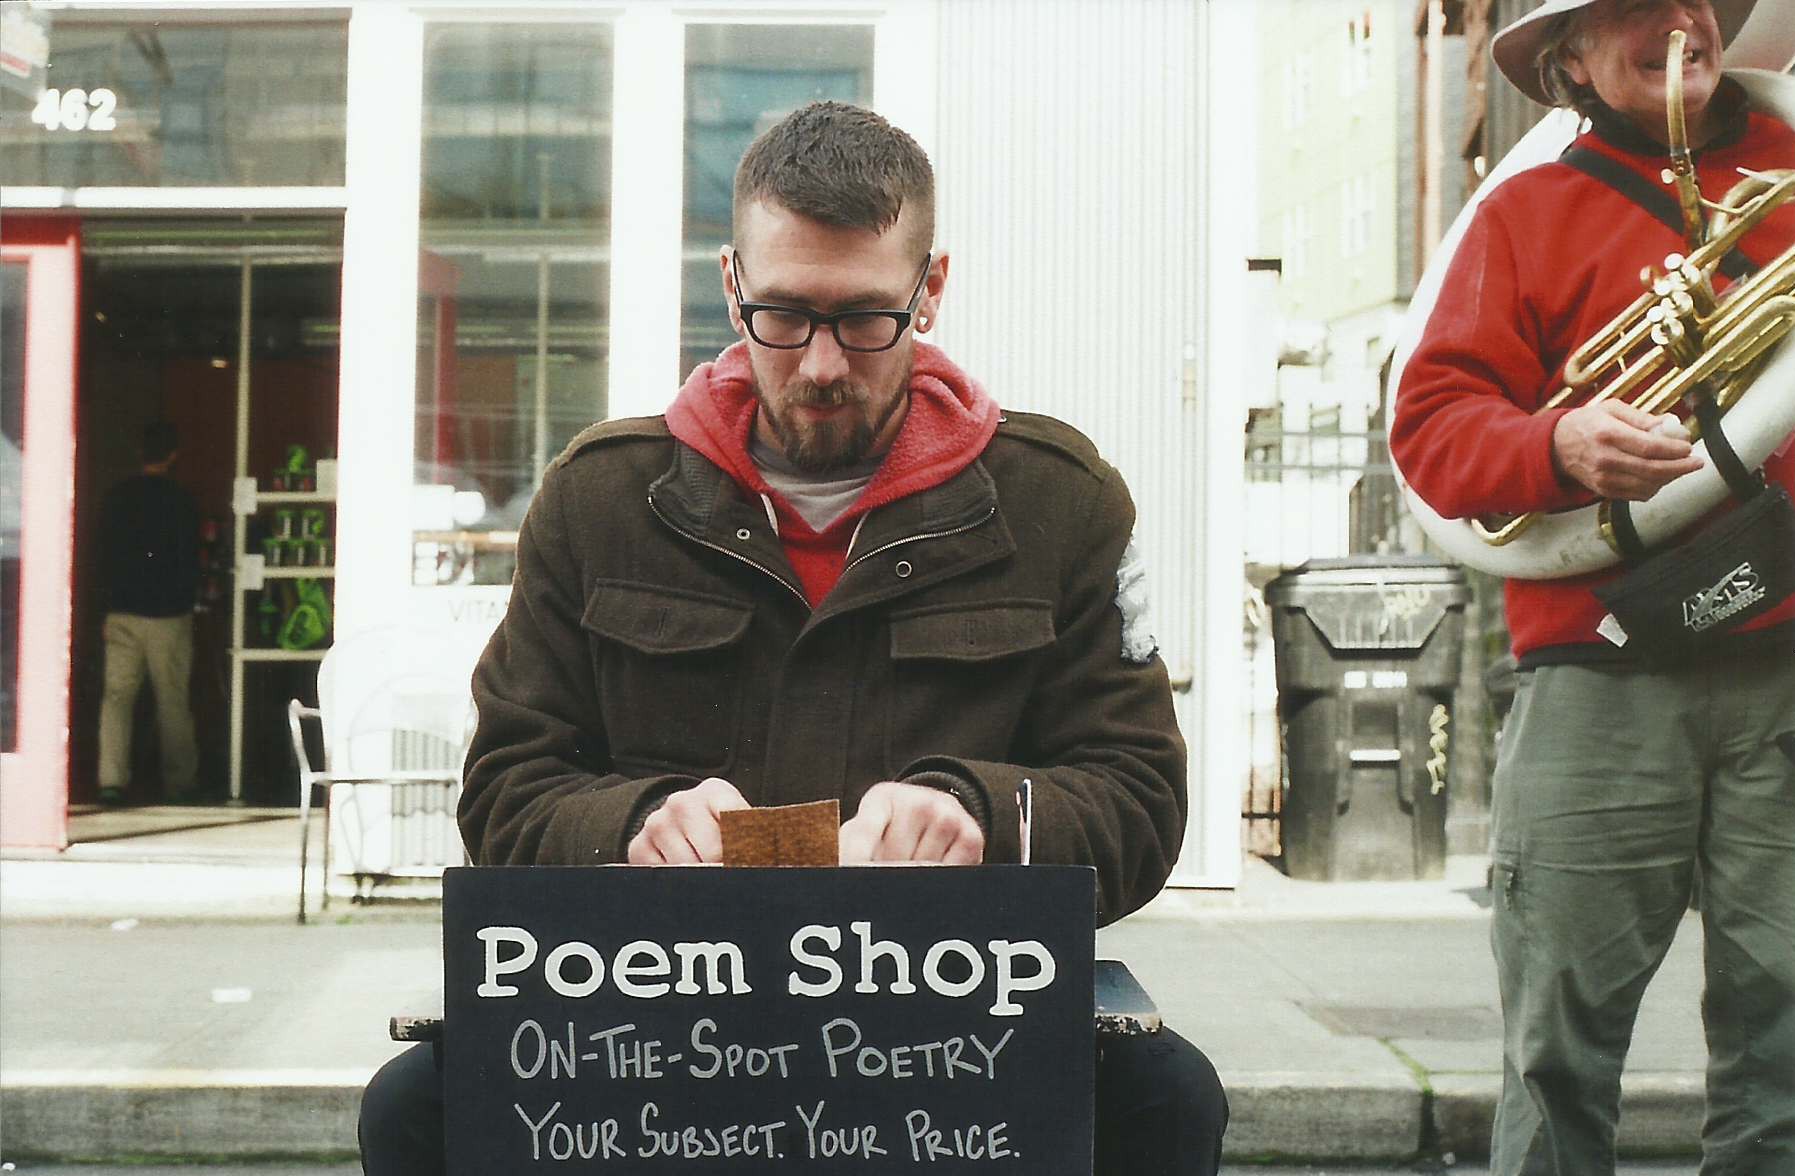 462
VITA
Poem Shop
ON-THE-SPOT POETRY
YOUR SUBJECT. YOUR PRICE.